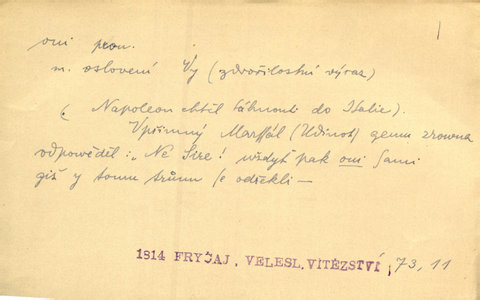 oni pron.
m. oslovení Vy (zdvořilostní výraz)
(Napoleon chtěl táhnouti do Italie).
Vpřimný Marssál (Udinot) gemu zrowna
odpověděl: „Ne Sire! wždyť pak oni sami
giž y tomu trůnu se odřekli —
1814 FRYČAJ, VELESL. VÍTĚZSTVÍ, 73, 11